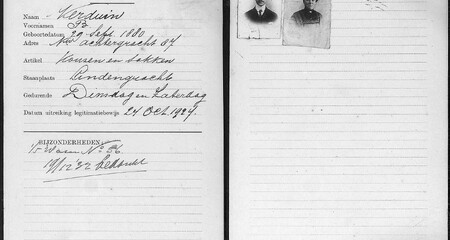 Naam Verduin
Voornamen
Geboortedatum 29 Sept. 1880
Adres Nwe achtergracht 67
Artikel Kousen en sokken
Staanplaats Lindengracht
Gedurende Dinsdag en Zaterdag
Datum uitreiking legitimatiebewijs 24 Oct. 1927.
BIJZONDERHEDEN:
1/5 No 56
19/12 '32